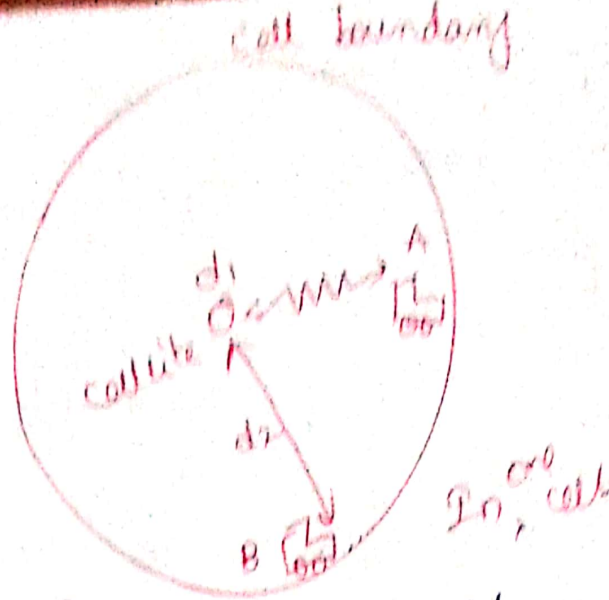 Cell boundary
A
d1
Cellsite
d2
B
In one cell